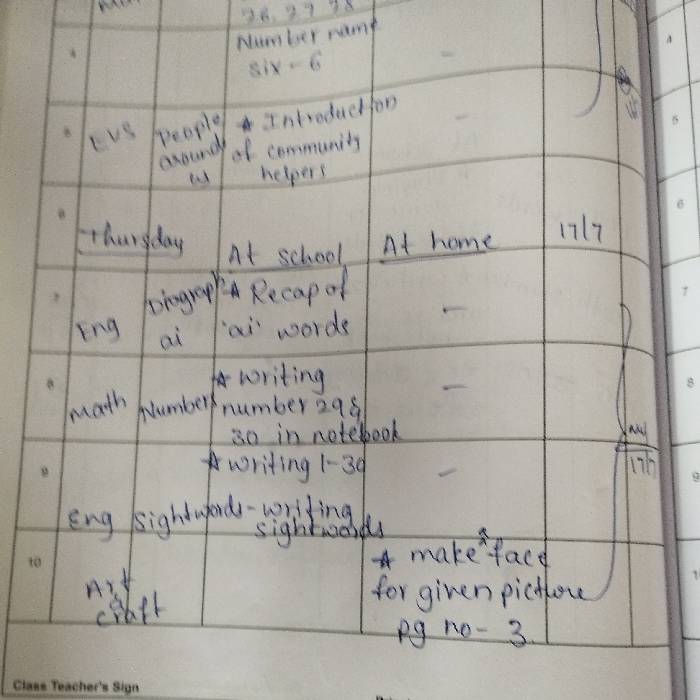 26, 27, 28
4
Number name
six - 6
-
4
5
EVS
People
around
us
* Introduction
of community
helpers
-
5
6
Thursday
At school
At home
17/7
6
7
Eng
Diograph
ai
* Recap of
'ai' words
-
7
8
Math
Numbers
* writing
number 29 &
30 in notebook
-
8
9
* writing 1-30
-
17/7
9
Eng
Sightwords - writing
sightwords
10
Art
&
craft
* make a face
for given picture
pg no - 3
Class Teacher's Sign